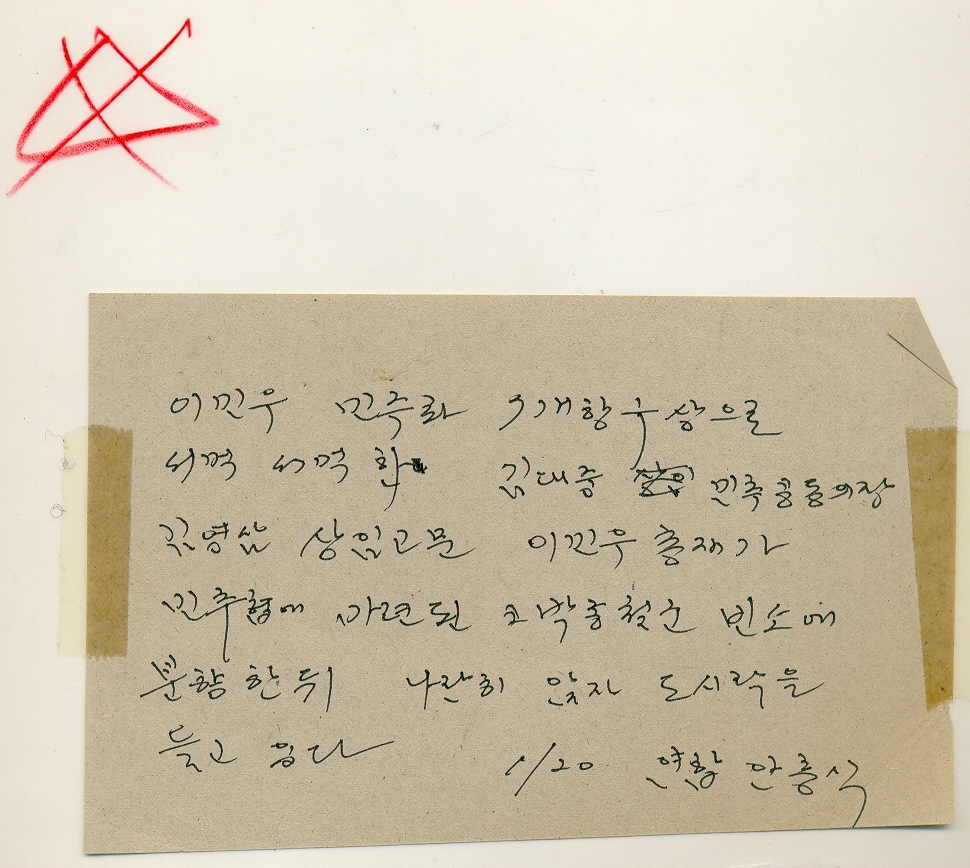 이민우 민주화 7개항 구상으로
서먹 서먹 한 김대중 민추공동의장
김영삼 상임고문 이민우 총재가
민추협에 마련된 고 박종철군 빈소에
분향한뒤 나란히 앉자 도시락을
들고 있다
1/20 연합 안종식